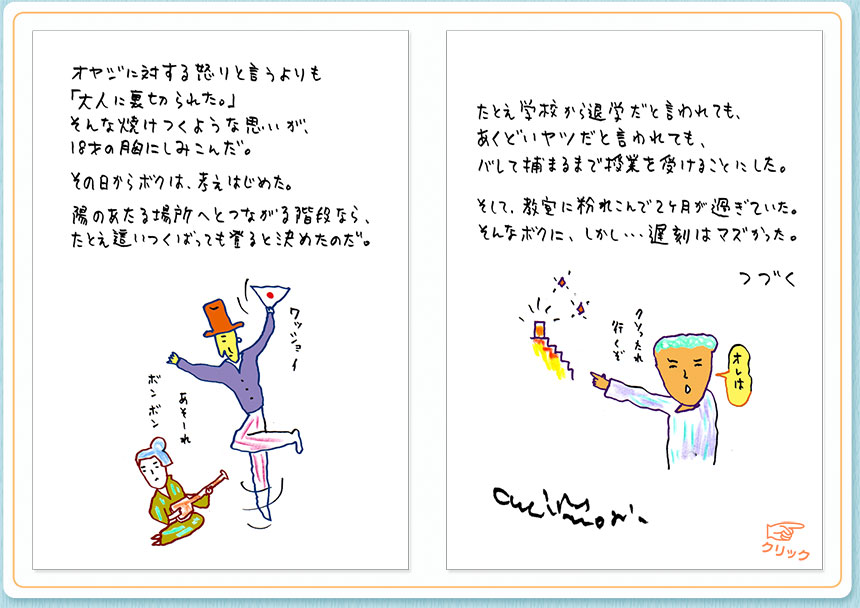 オヤジに対する怒りと言うよりも
「大人に裏切られた。」
そんな焼けつくような思いが、
18才の胸にしみこんだ。
その日からボクは、考えはじめた。
陽のあたる場所へとつながる階段なら、
たとえ這いつくばっても登ると決めたのだ。
ワッショイ
あそーれ
ボンボン
たとえ学校から退学だと言われても、
あくどいヤツだと言われても、
バレて捕まるまで授業を受けることにした。
そして、教室に粉れこんで2ヶ月が過ぎていた。
そんなボクに、しかし・・・遅刻はマズかった。
つづく
クソったれ
行くぞ
オレは
クリック